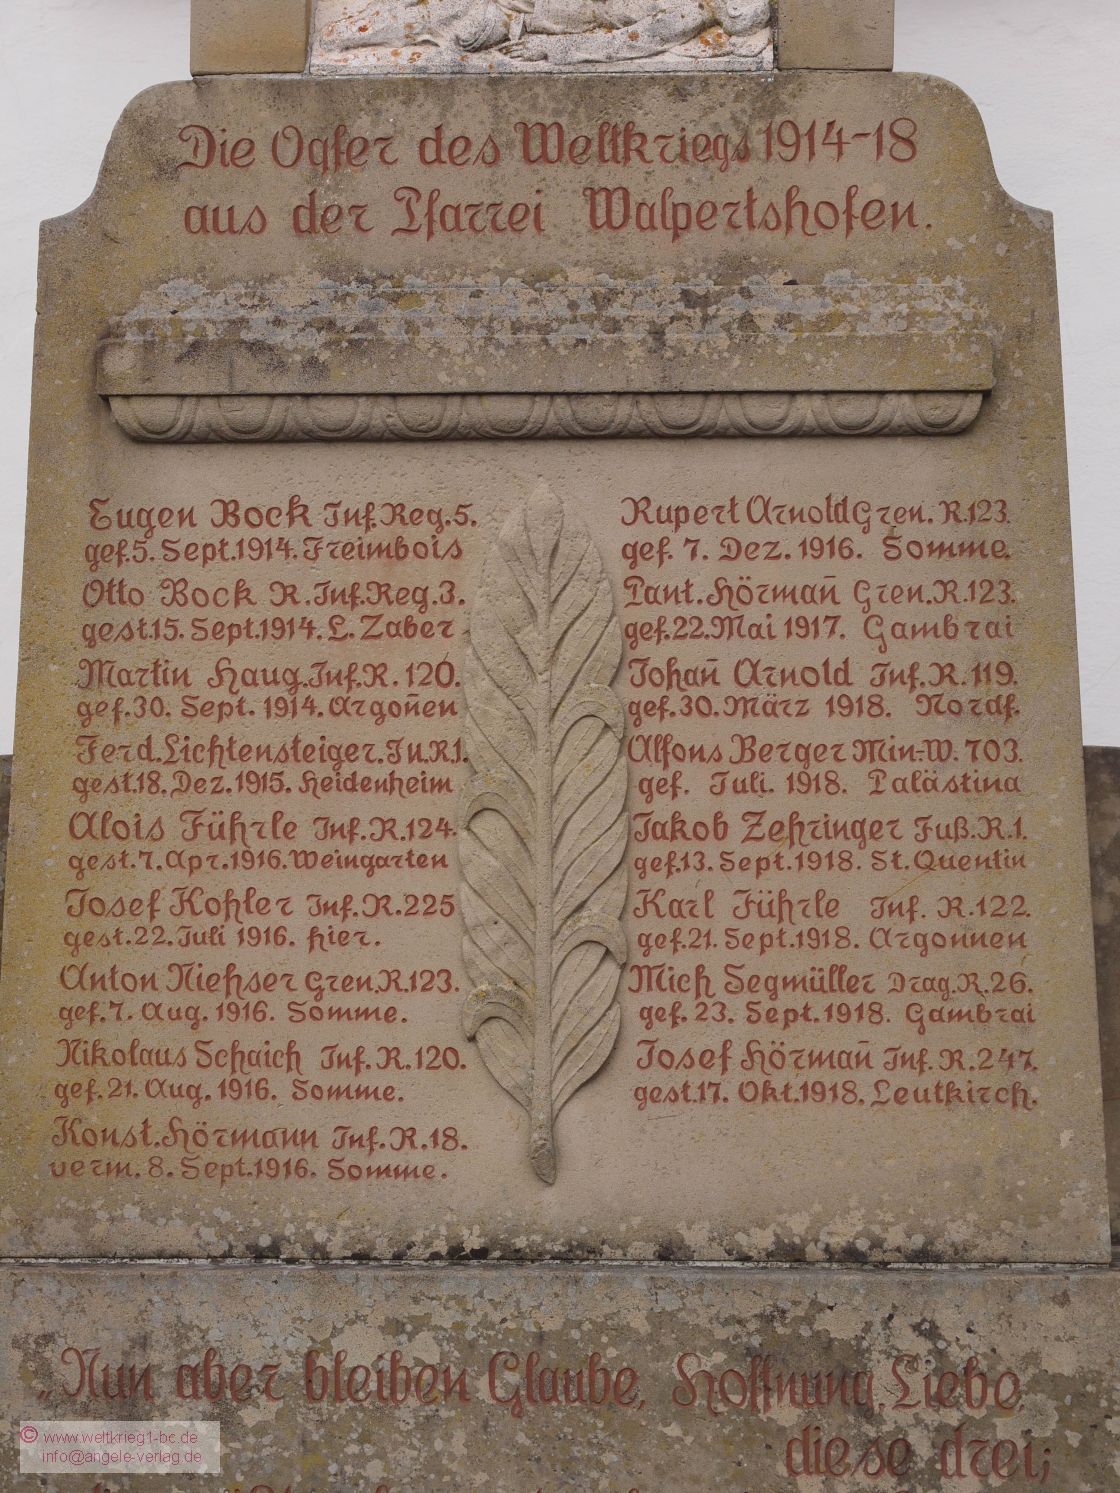 Die Opfer des Weltkriegs 1914-18
aus der Pfarrei Walpertshofen.
Eugen Bock Inf.Reg.5.
gef.5. Sept.1914. Freimbois
Otto Bock R.Inf.Reg.3.
gest.15. Sept.1914. L. Zaber
Martin Haug.Inf.R. 120.
gef.30. Sept. 1914. Argon̄en
Ferd.Lichtensteiger.In.R.1.
gest.18. Dez. 1915. Heidenheim
Alois Führle Inf.R.124.
gest.7. Apr.1916. Weingarten
Josef Kohler Inf.R.225
gest.22.Juli 1916. hier.
Anton Niehser Gren.R.123.
gef.7. Aug. 1916. Somme.
Nikolaus Schaich Inf.R.120.
gef.21. Aug. 1916. Somme.
Konst.Hörmann Inf.R.18.
verm. 8. Sept.1916. Somme.
Rupert Arnold Gren. R.123.
gef. 7. Dez. 1916. Somme.
Pant.Hörman̄ Gren.R.123.
gef.22.Mai 1917. Gambrai
Johan̄ Arnold Inf.R. 119.
gef.30. März 1918. Nordf.
Alfons Berger Min.-W. 703.
gef. Juli. 1918. Palästina
Jakob Zehringer Fuß.R.1.
gef.13. Sept. 1918. St.Quentin
Karl Führle Inf. R.122.
gef.21. Sept.1918. Argonnen
Mich Segmüller Drag.R.26.
gef. 23. Sept.1918. Gambrai
Josef Hörman̄ Inf.R.247.
gest.17. Okt.1918. Leutkirch.
„Nun aber bleiben Glaube, Hoffnung, Liebe,
diese drei;
© www.weltkrieg1-bc.de
info@angele-verlag.de